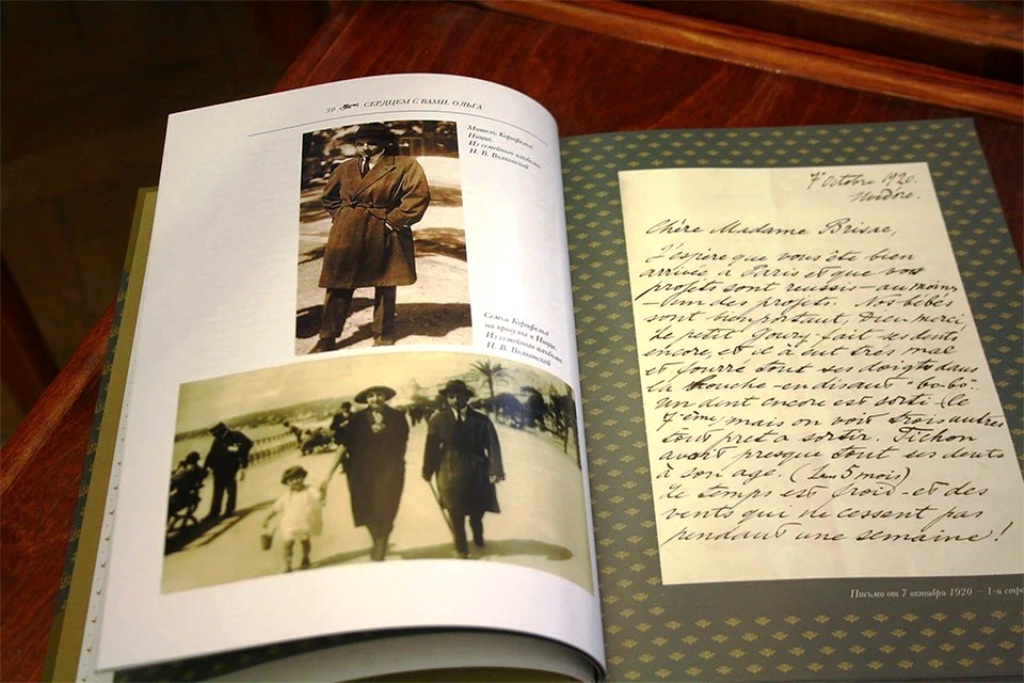 30 СЕРДЦЕМ С ВАМИ, ОЛЬГА
Мишель Корнфельд.
Ницца.
Из семейного альбома
Н. В. Волынской
Семья Корнфельд
на прогулке в Ницце.
Из семейного альбома
Н. В. Волынской
7 Octobre 1920.
Hvidöre.
Chère Madame Brisac,
J'espère que vous ête bien
arrivée à Paris et que vos
projets sont reussis – au moins
– l'un des projets. Nos bébés
sont bien portant, Dieu merci,
le petit Goury fait ses dents
encore, et il a eut très mal
et fourre tout ses doigts dans
la bouche – en disant "bo-bo".
un dent encore est sorti (le
7-ème) mais on voit trois autres
tout pret a sortir. Tichon
avait presque tout ses dents
à son age. (1 an 5 mois)
Le temps est froid – et des
vents qui ne cessent pas
pendant une semaine!
Письмо от 7 октября 1920 — 1-я стр